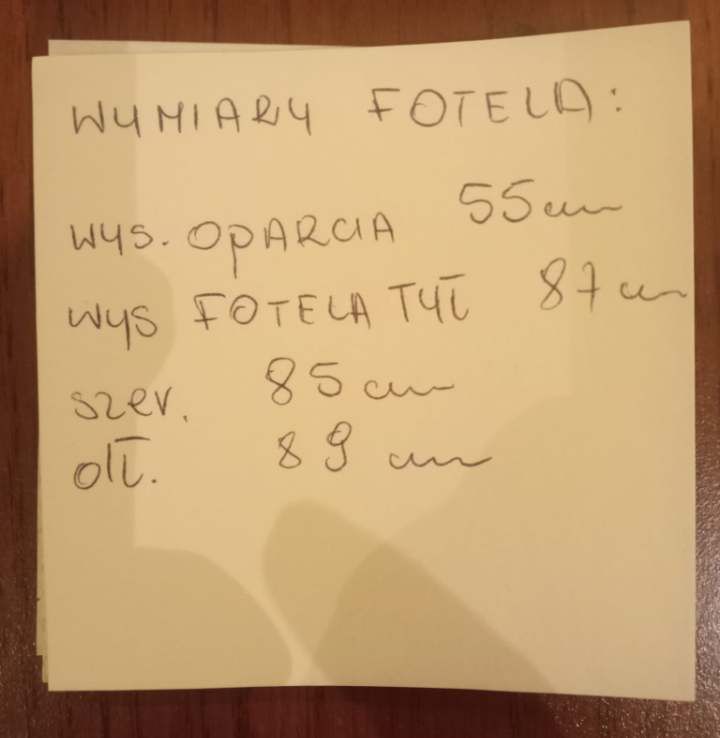 WYMIARY FOTELA:
WYS. OPARCIA 55cm
WYS FOTELA TYŁ 87cm
szer. 85cm
dł. 89 cm